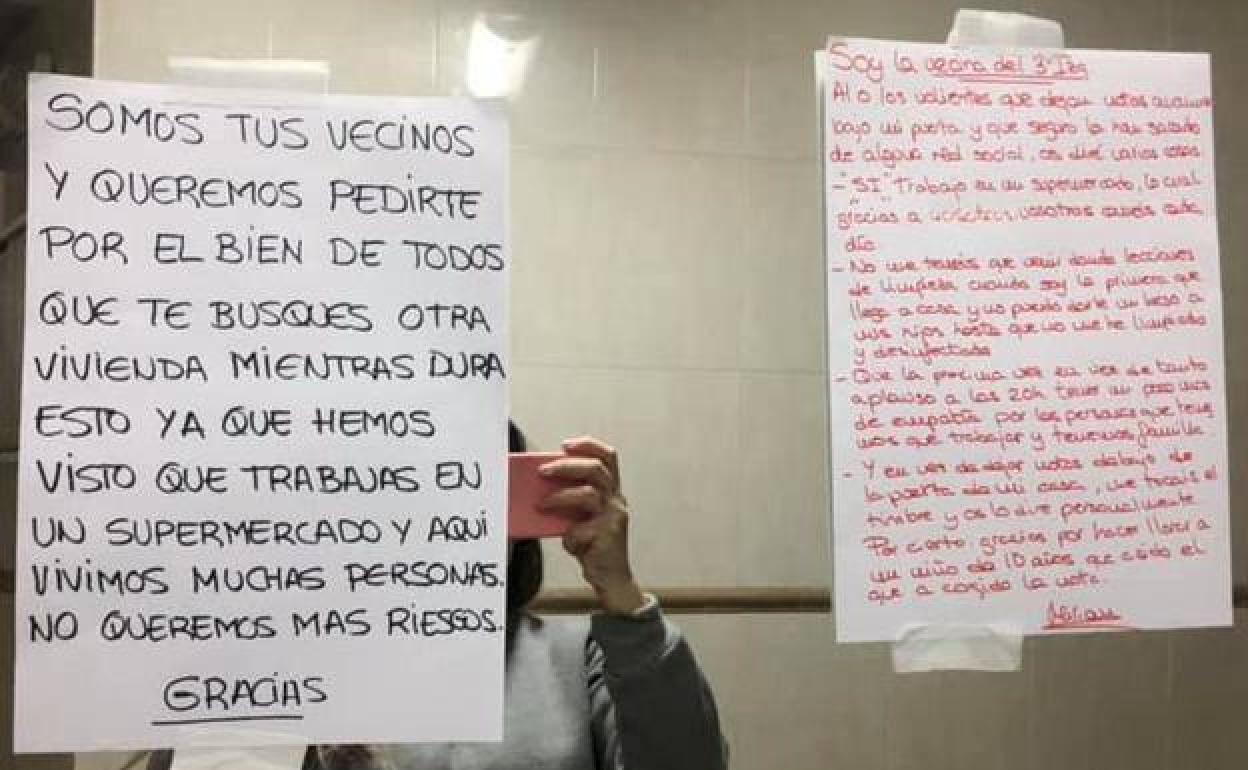 SOMOS TUS VECINOS
Y QUEREMOS PEDIRTE
POR EL BIEN DE TODOS
QUE TE BUSQUES OTRA
VIVIENDA MIENTRAS DURA
ESTO YA QUE HEMOS
VISTO QUE TRABAJAS EN
UN SUPERMERCADO Y AQUI
VIVIMOS MUCHAS PERSONAS.
NO QUEREMOS MAS RIESGOS.
GRACIAS
Soy la vecina del 3º Izq
Al o los valientes que dejan notas
bajo mi puerta y que seguro la han sacado
de alguna red social, os diré varias cosas
-"SI" Trabajo en un supermercado, lo cual
"gracias" a vosotros cada
día
- No me teneis que venir dando lecciones
de limpieza cuando soy la primera que
llega a casa y no puedo darle un beso a
mis hijos hasta que no me he limpiado
y desinfectado
- Que la proxima vez en vez de tanto
aplauso a las 20h tener un poco mas
de empatía por las personas que tene
mos que trabajar y tenemos familia
- Y en vez de dejar notas debajo de
la puerta de mi casa, me tocais el
timbre y os lo dire personalmente
Por cierto, gracias por hacer llorar a
un niño de 10 años, que a sido el
que a cogido la nota.
Miriam